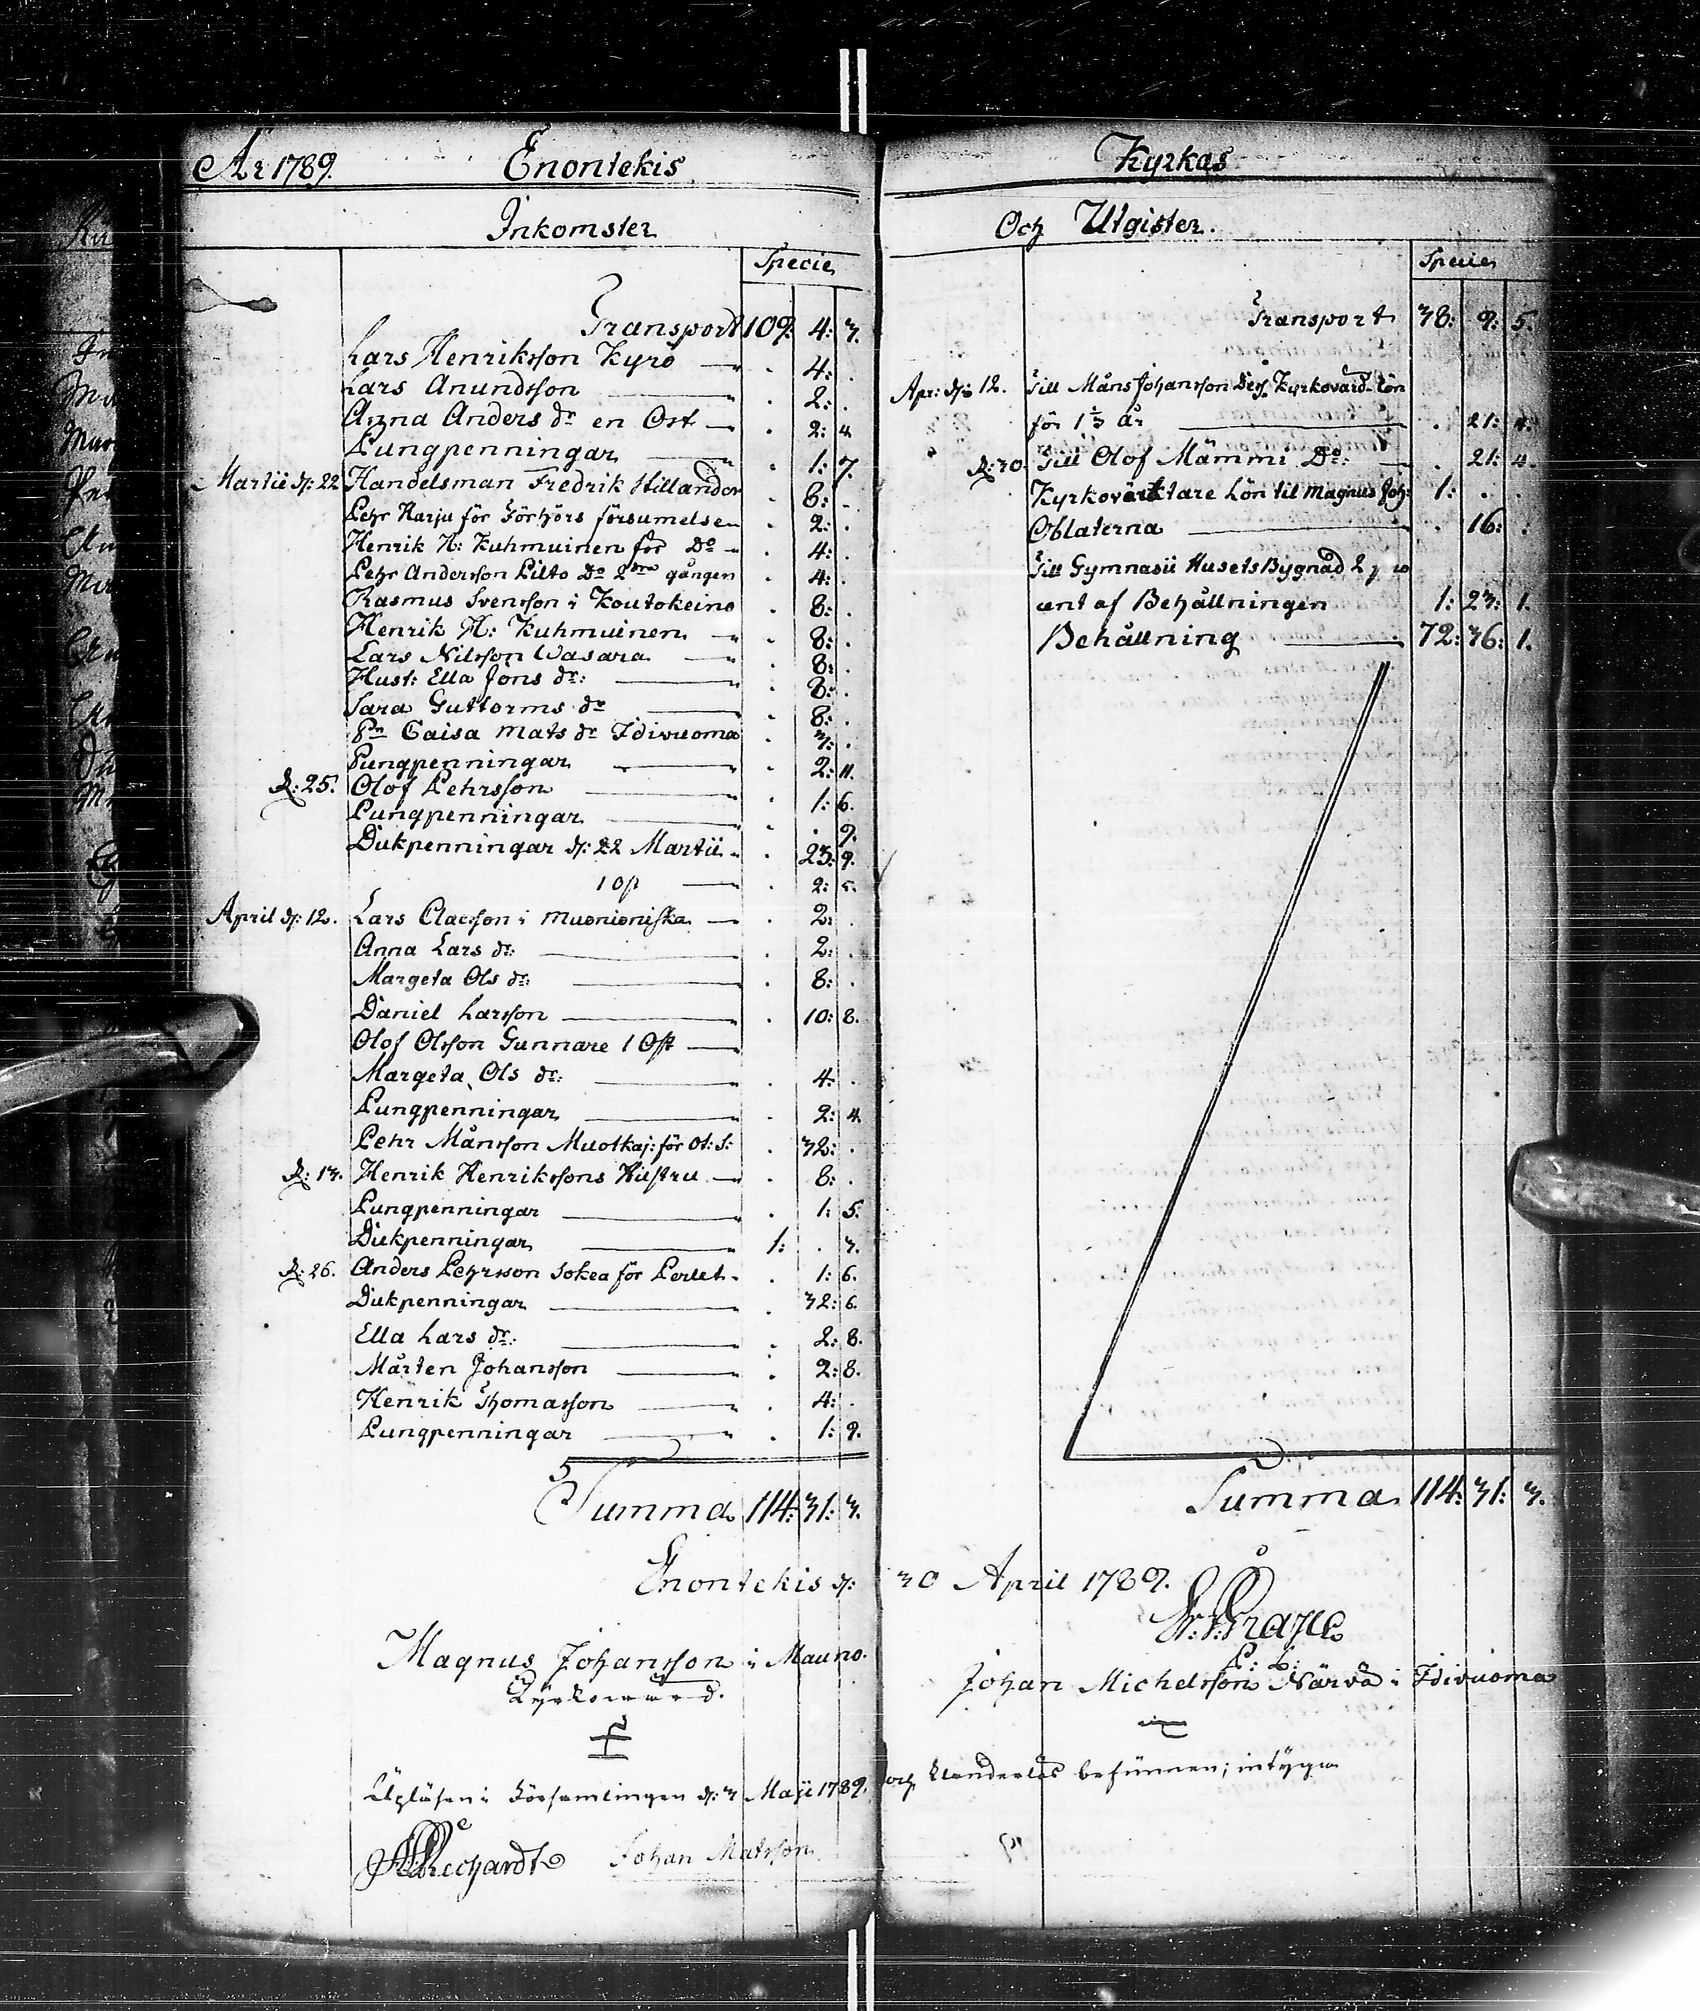 År 1789. Enontekis
Inkomster
Specie
Transport 109: 4: 3.
Lars Henriksson Kyrö . 4: .
Lars Anundsson . 2: .
Anna Anders dr en Ost . 2: 4.
Pungpenningar . 1: 7.
Martii d: 22 Handelsman Fredrik Hillander . 8: .
Pehr Harju för Förhörs försumelse . 2: .
Henrik H: Kuhmuinen för Do . 4: .
Pehr Andersson Pilto Do 2dra gången . 4: .
Rasmus Svensson i Koutokeino . 8: .
Henrik H: Kuhmuinen . 8: .
Lars Nilsson Wasara . 8: .
Hust: Ella Jons dr: . 8: .
Sara Guttorms dr . 8: .
Caisa Mats dr Idivuoma . 3: .
Pungpenningar . 2: 11.
D: 25. Olof Pehrsson . 1: 6.
Pungpenningar . . 9.
Dukpenningar d: 22 Martii . 23: 9.
1 Ost . 2: 5.
April d: 12. Lars Claesson i Muonioniska . 2: .
Anna Lars dr: . 2: .
Margeta Ols dr: . 8: .
Daniel Larsson . 10: 8.
Olof Olsson Gunnare 1 Ost
Margeta Ols dr: . 4: .
Pungpenningar . 2: 4.
Pehr Månsson Muotkaj: för Ol: S: . 32: .
D: 13. Henrik Henrikssons Hustru . 8: .
Pungpenningar . 1: 5.
Dukpenningar 1: . 3.
D: 26. Anders Pehrsson Sokea för . 1: 6.
Dukpenningar . 32: 6.
Ella Lars dr: . 2: 8.
Mårten Johansson . 2: 8.
Henrik Thomasson . 4: .
Pungpenningar . 1: 9.
Summa 114: 31: 3.
Kyrkas
Och Utgifter.
Specie
Transport 38: 9: 5.
Apr: d: 12. Till Måns Johansson Kyrkovärd. Lön
för 1 1/3 år . 21: 4.
D: 30. Till Olof Mämmi Do: . 21: 4.
Kyrkovärktare Lön til Magnus Joh: 1: . .
Oblaterna . 16: .
Till Gymnasii Husets Bygnad 2 pro
cent af Behållningen 1: 23: 1.
Behållning 72: 36: 1.
Summa 114: 31: 3.
Enontekis d: 30 April 1789.
E: Grape
P: L:
Magnus Johansson i Mauno. Johan Michelsson Närvä i Idivuoma
Kyrkovärd.
Upläsen i Församlingen d: 3 Maji 1789. och klanderlös befunnen; intyga
Rechardt Johan Matsson